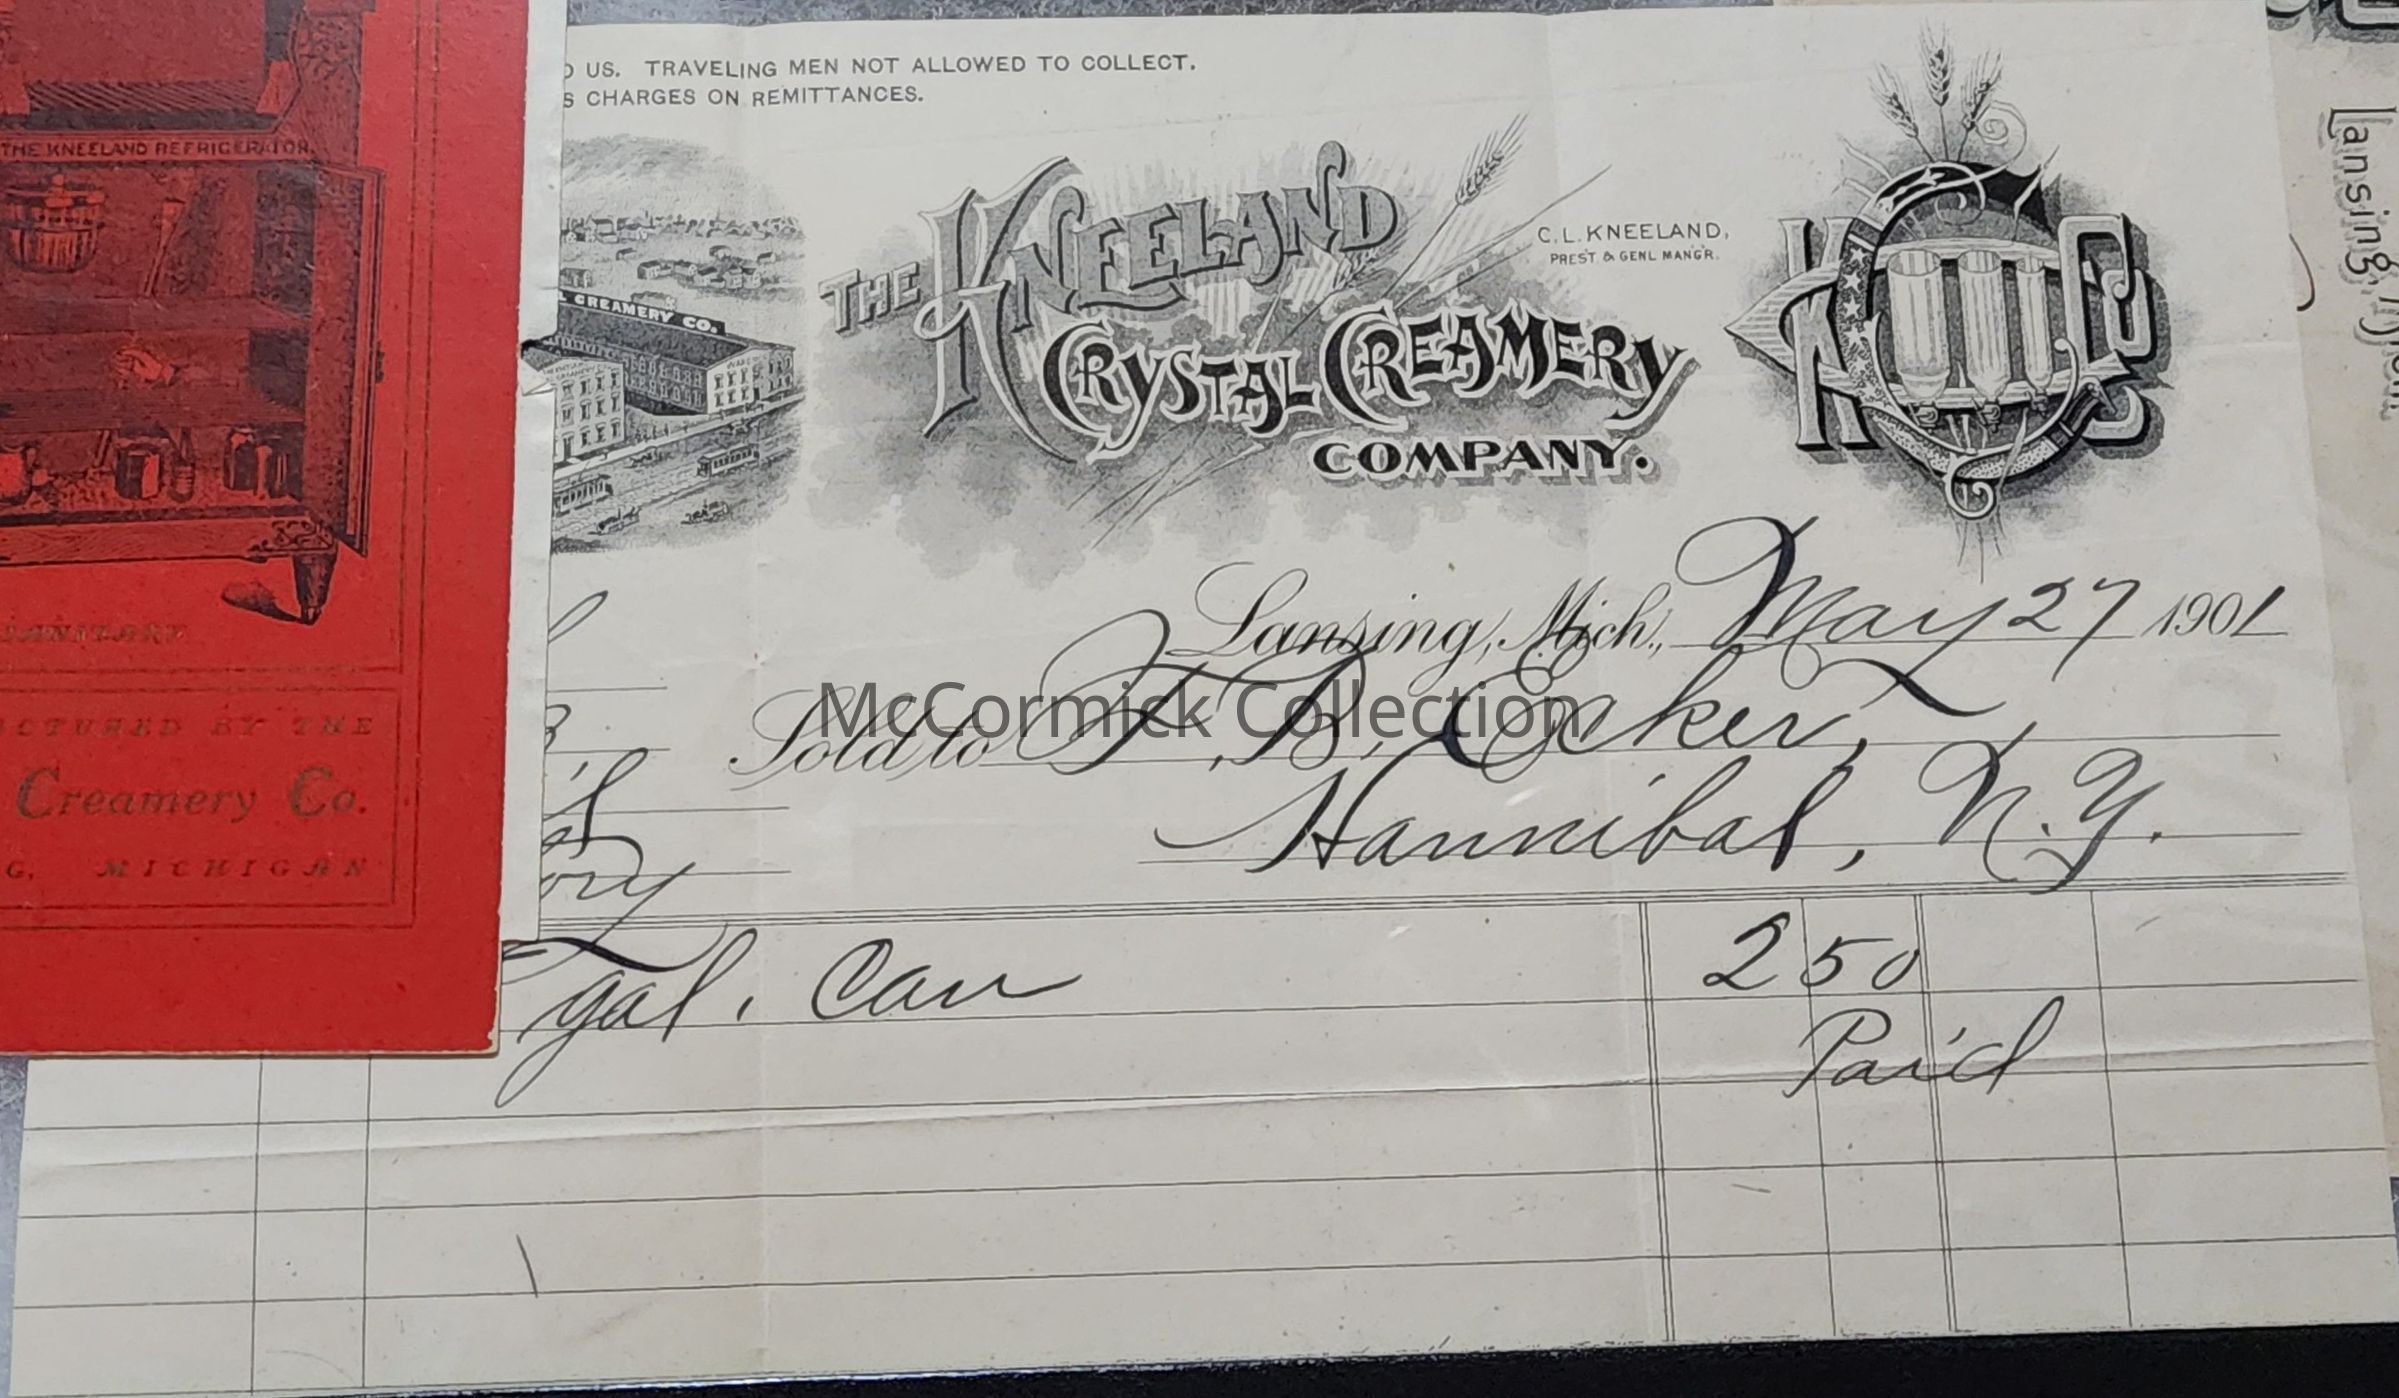 THE KNEELAND REFRIGERATOR.
SANITARY
BY THE
Creamery Co.
MICHIGAN
US. TRAVELING MEN NOT ALLOWED TO COLLECT.
CHARGES ON REMITTANCES.
CREAMERY CO.
THE KNEELAND
CRYSTAL CREAMERY
COMPANY.
C. L. KNEELAND,
PREST & GENL MANGR.
K C Co
Lansing, Mich., May 27 1901
Sold to F. B. Ecker,
Hannibal, N.Y.
gal. Can 2 50
Paid
McCormick Collection
Lansing,